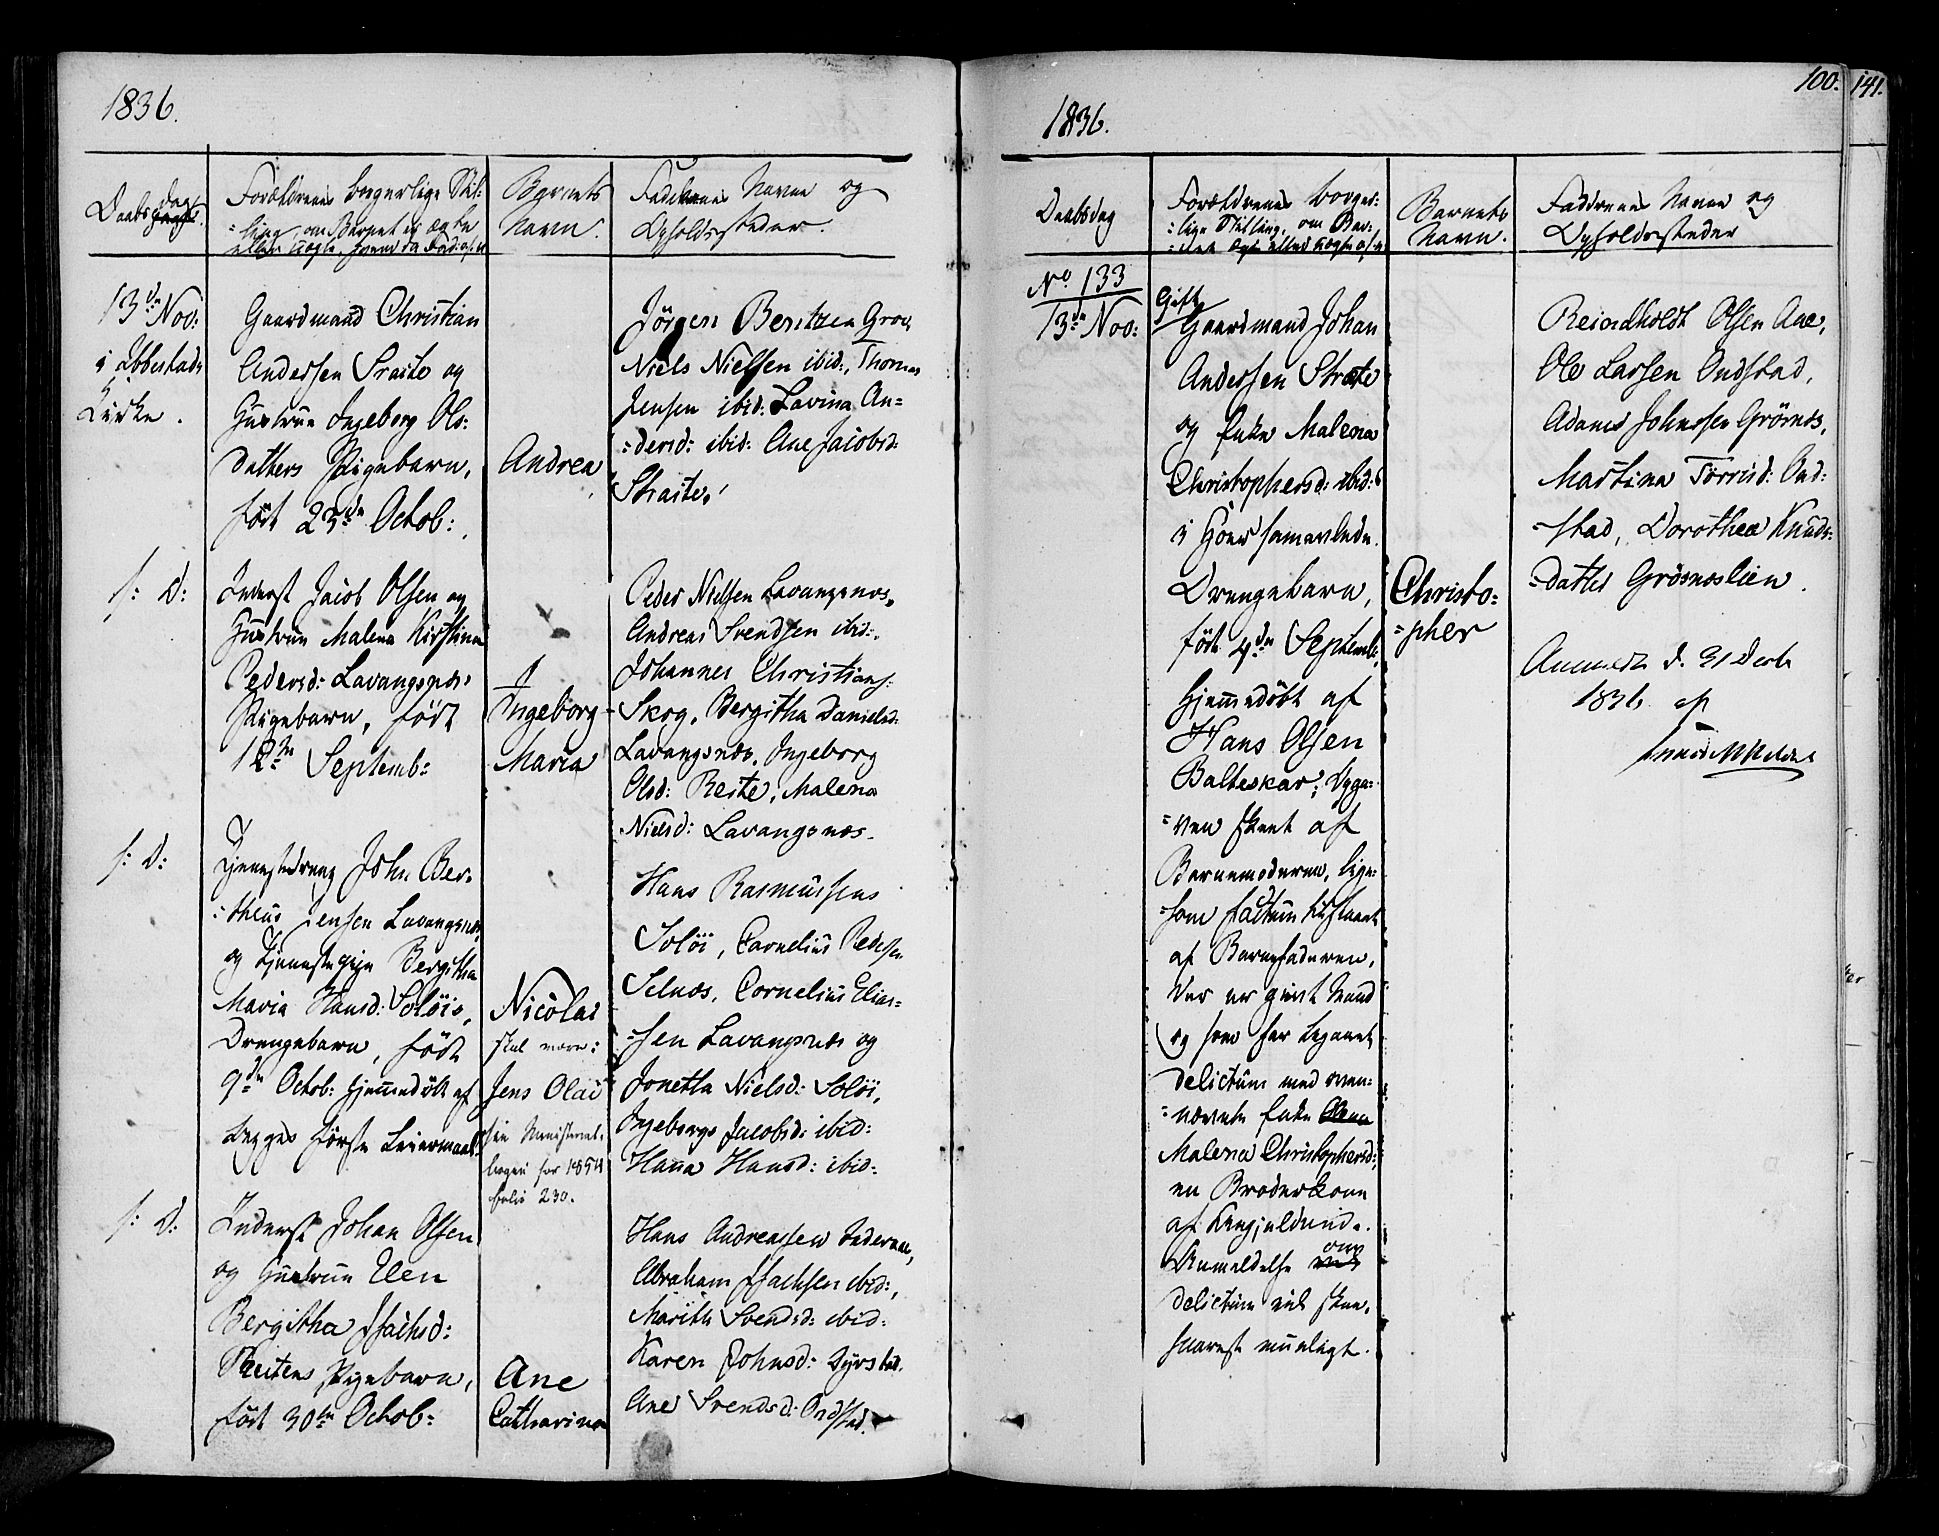 1836.
Daabsdag
Forældrenes borgerlige Stil-
=ling, om Barnet er ægte
eller uægte
Barnets
Navn.
Faddrenes Navne og
Opholdssteder.
13de Nov:
i Ibbestads
Kirke.
Gaardmand Christian
Andersen Straite og
Hustrue Ingeborg Ols:
datters Pigebarn,
født 23de Octob:
Andrea
Jørgen Bentzen Grov,
Niels Nielsen ibid:, Thomas
Jensen ibid: Lavina An=
=dersd: ibid: Ane Jacobsd:
Straite.
s: D:
Inderst Jacob Olsen og
Hustrue Malena Kirstina
Pedersd: Lavangsnæs
Pigebarn, født
12te Septemb:
Ingeborg
Maria
Peder Nielsen Lavangsnæs,
Andreas Svendsen ibid:,
Johannes Christians:
Skog, Bergitha Danielsd:
Lavangsnæs, Ingeborg
Olsd: Reite, Malena
Nielsd: Lavangsnæs.
s: D:
Tjenestedreng John Ber-
=theus Jensen Lavangsnæs,
og Tjenestepige Bergitha
Maria Hansd: Soløis,
Drengebarn, født
9de Octob: hjemmedøbt af
Begges første Leiermaal.
Nicolai
skal være:
Jens Olai
see Ministerial-
bogen for 1854
folio 230.
Hans Rasmussens
Soløi, Cornelius Pedersen
Selnæs, Cornelius Elias=
=sen Lavangsnæs og
Jonetta Nielsd: Soløi,
Ingeborg Jacobsd: ibid:
Hana Hansd: ibid:
s: D:
Inderst Johan Olsen
og Hustrue Elen
Bergitha Isachsd:
Reitens Pigebarn,
født 30te Octob:
Ane
Catharina
Hans Andreassen
Abraham Isachsen ibid:,
Marith Svendsd: ibid:
Karen Johnsd: Dyrstad,
Ane Svendsd: Ondstad.
1836.
100.
141.
Daabsdag
Forældrenes borger-
=lige Stilling, om Bar-
=net ægte eller uægte
Barnets
Navn.
Faddrenes Navne og
Opholdssteder
No 133
13de Nov:
Gift
Gaardmand Johan
Andersen Straite
og Enke Malena
Christophersd: ibid:
i Hoer sammenledne
Drengebarn,
født 4de Septemb:,
hjemmedøbt af
Hans Olsen
Balteskar; Opgi-
=ven skeet af
Barnemoderen, lige-
=som factum tilstaaet
af Barnefaderen,
der er givt Mand
og som har begaaet
delictum med oven-
=nævnte Enke
Malena Christophersd:,
en Broderkone
af
Anmeldelse om
delictum vil skee
snarest mueligt.
Christo=
=pher
Reindholdt Olsen Aae,
Ole Larsen Ondstad,
Adams Johnssen Grøsnæs,
Martina Torrisd: Ond=
=stad, Dorothea Knuds=
=datter Grøsnæslien.
Anmeldt d. 31 Decb
1836 af